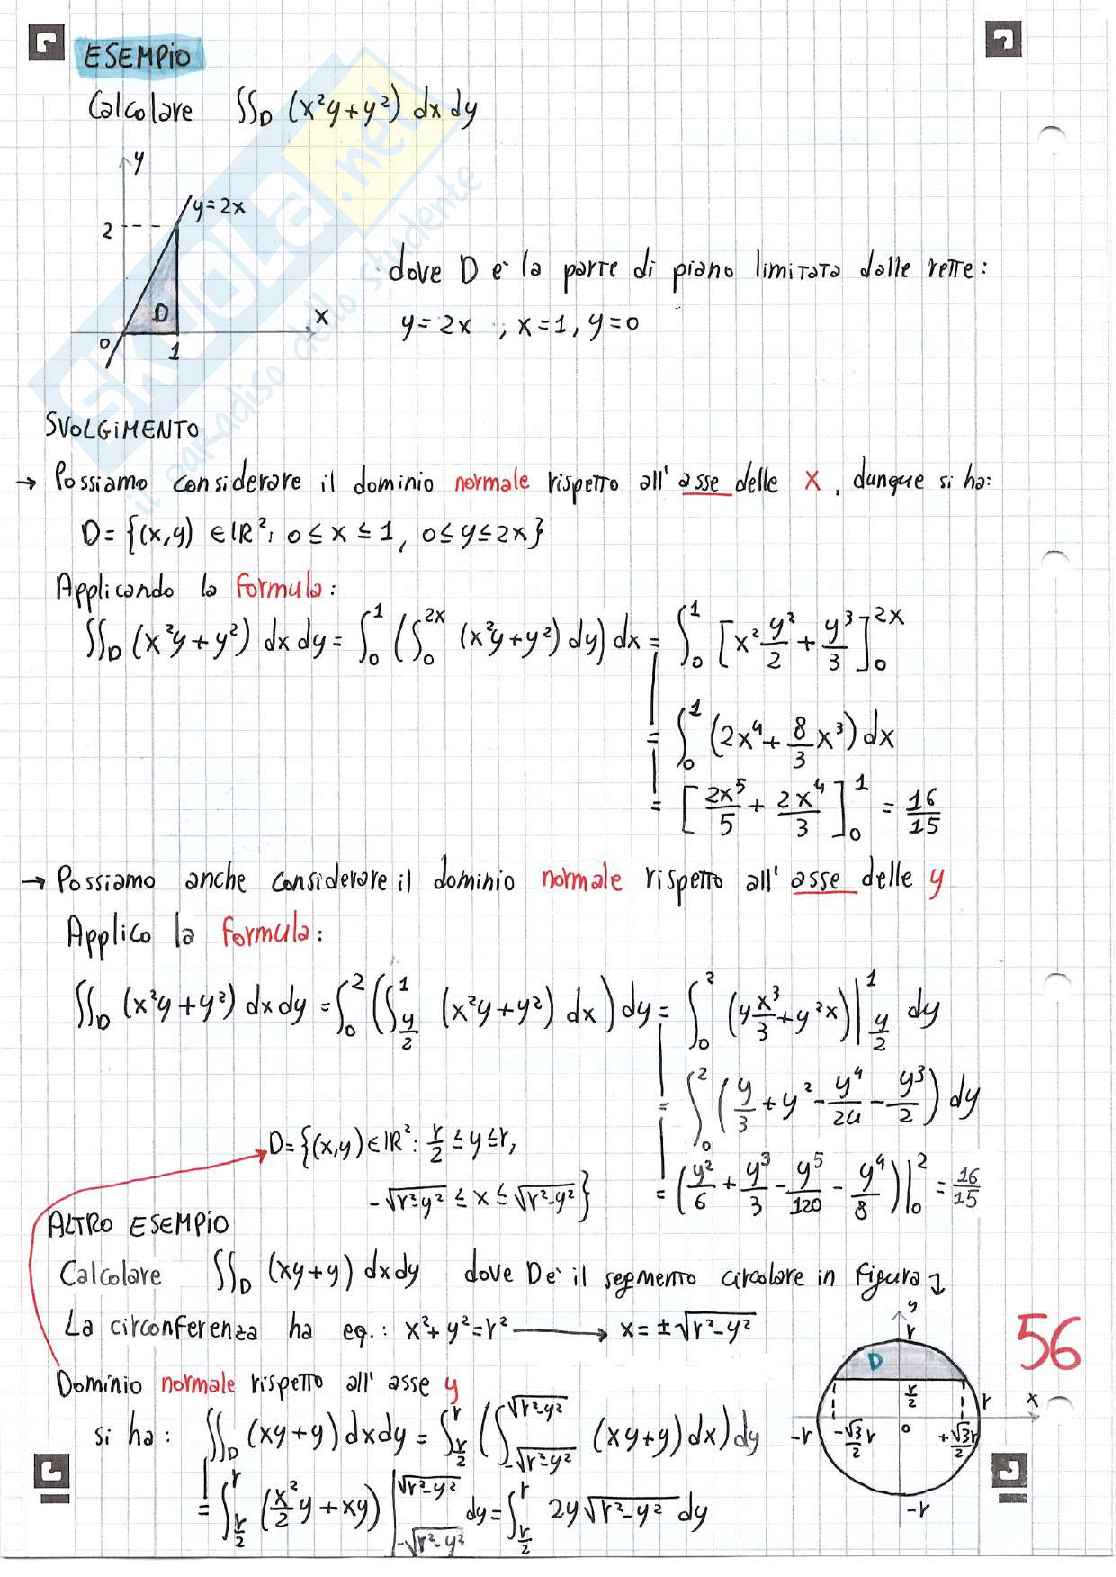 ESEMPIO
Calcolare ∬_D (x²y+y²) dx dy
y
y=2x
2
D
x
0
1
dove D è la parte di piano limitata dalle rette:
y=2x , x=1, y=0
SKUOLA.net
il paradiso dello studente
SVOLGIMENTO
→ Possiamo considerare il dominio normale rispetto all'asse delle x, dunque si ha:
D={(x,y) ∈ℝ²: 0≤x≤1, 0≤y≤2x}
Applicando la formula:
∬_D (x²y+y²) dx dy = ∫_0^1 (∫_0^{2x} (x²y+y²) dy) dx = ∫_0^1 [x² y²/2 + y³/3]_0^{2x}
= ∫_0^1 (2x⁴+8/3 x³) dx
= [2x⁵/5 + 2x⁴/3]_0^1 = 16/15
→ Possiamo anche considerare il dominio normale rispetto all'asse delle y
Applico la formula:
∬_D (x²y+y²) dx dy = ∫_0^2 (∫_{y/2}^1 (x²y+y²) dx) dy = ∫_0^2 (y x³/3 + y²x)|_{y/2}^1 dy
= ∫_0^2 (y/3 + y² - y⁴/24 - y³/2) dy
D={(x,y)∈ℝ²: r/2 ≤y≤r,
-√(r²-y²) ≤ x ≤ √(r²-y²)}
= (y²/6 + y³/3 - y⁵/120 - y⁴/8)|_0^2 = 16/15
ALTRO ESEMPIO
Calcolare ∬_D (xy+y) dx dy dove D è il segmento circolare in figura ↓
La circonferenza ha eq.: x²+y²=r² → x=±√(r²-y²)
56
y
r
D
r/2
r
x
-r
-√3/2 r
0
+√3/2 r
-r
Dominio normale rispetto all'asse y
si ha: ∬_D (xy+y) dx dy = ∫_{r/2}^r (∫_{-√(r²-y²)}^{√(r²-y²)} (xy+y) dx) dy
= ∫_{r/2}^r (x²/2 y + xy)|_{-√(r²-y²)}^{√(r²-y²)} dy = ∫_{r/2}^r 2y√(r²-y²) dy